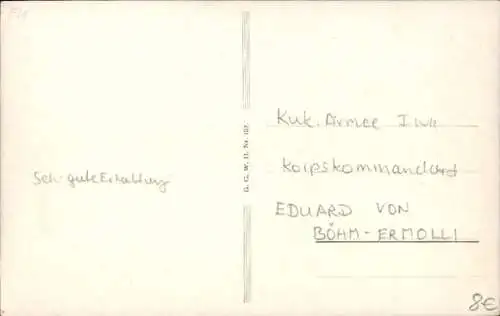 Sehr gute Erhaltung
G. G. W. II. Nr. 107.
Kuk. Armee I WK
Korpskommandant
EDUARD VON
BÖHM-ERMOLLI
8€